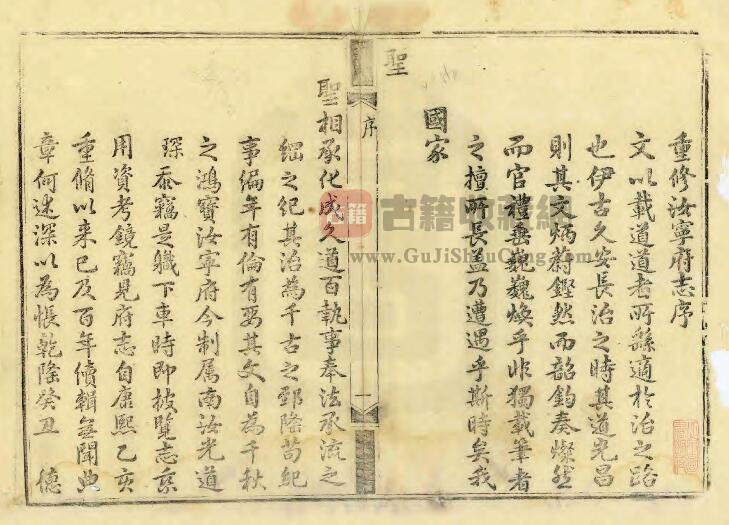 重修汝寧府志序
文以載道道者所繇適於治之路
也伊古久安長治之時其道光昌
則其文炳蔚鏗然而韶鈞奏燦然
而官禮垂巍巍煥乎非獨載筆者
之擅所長蓋乃遭遇乎斯時矣我
國家
聖
序
一
聖相承化成久道百執事奉法承流之
細之紀其治為千古之郅隆苟紀
事編年有倫有要其文自為千秋
之鴻寶汝寧府今制属南汝光道
琛忝竊是職下車時即披覽志乘
用資考鏡竊見府志自康熙乙亥
重脩以来已及百年續輯無聞典
章何述深以為悵乾隆癸丑 德
古籍收藏網
www.GuJiShouCang.com
古籍